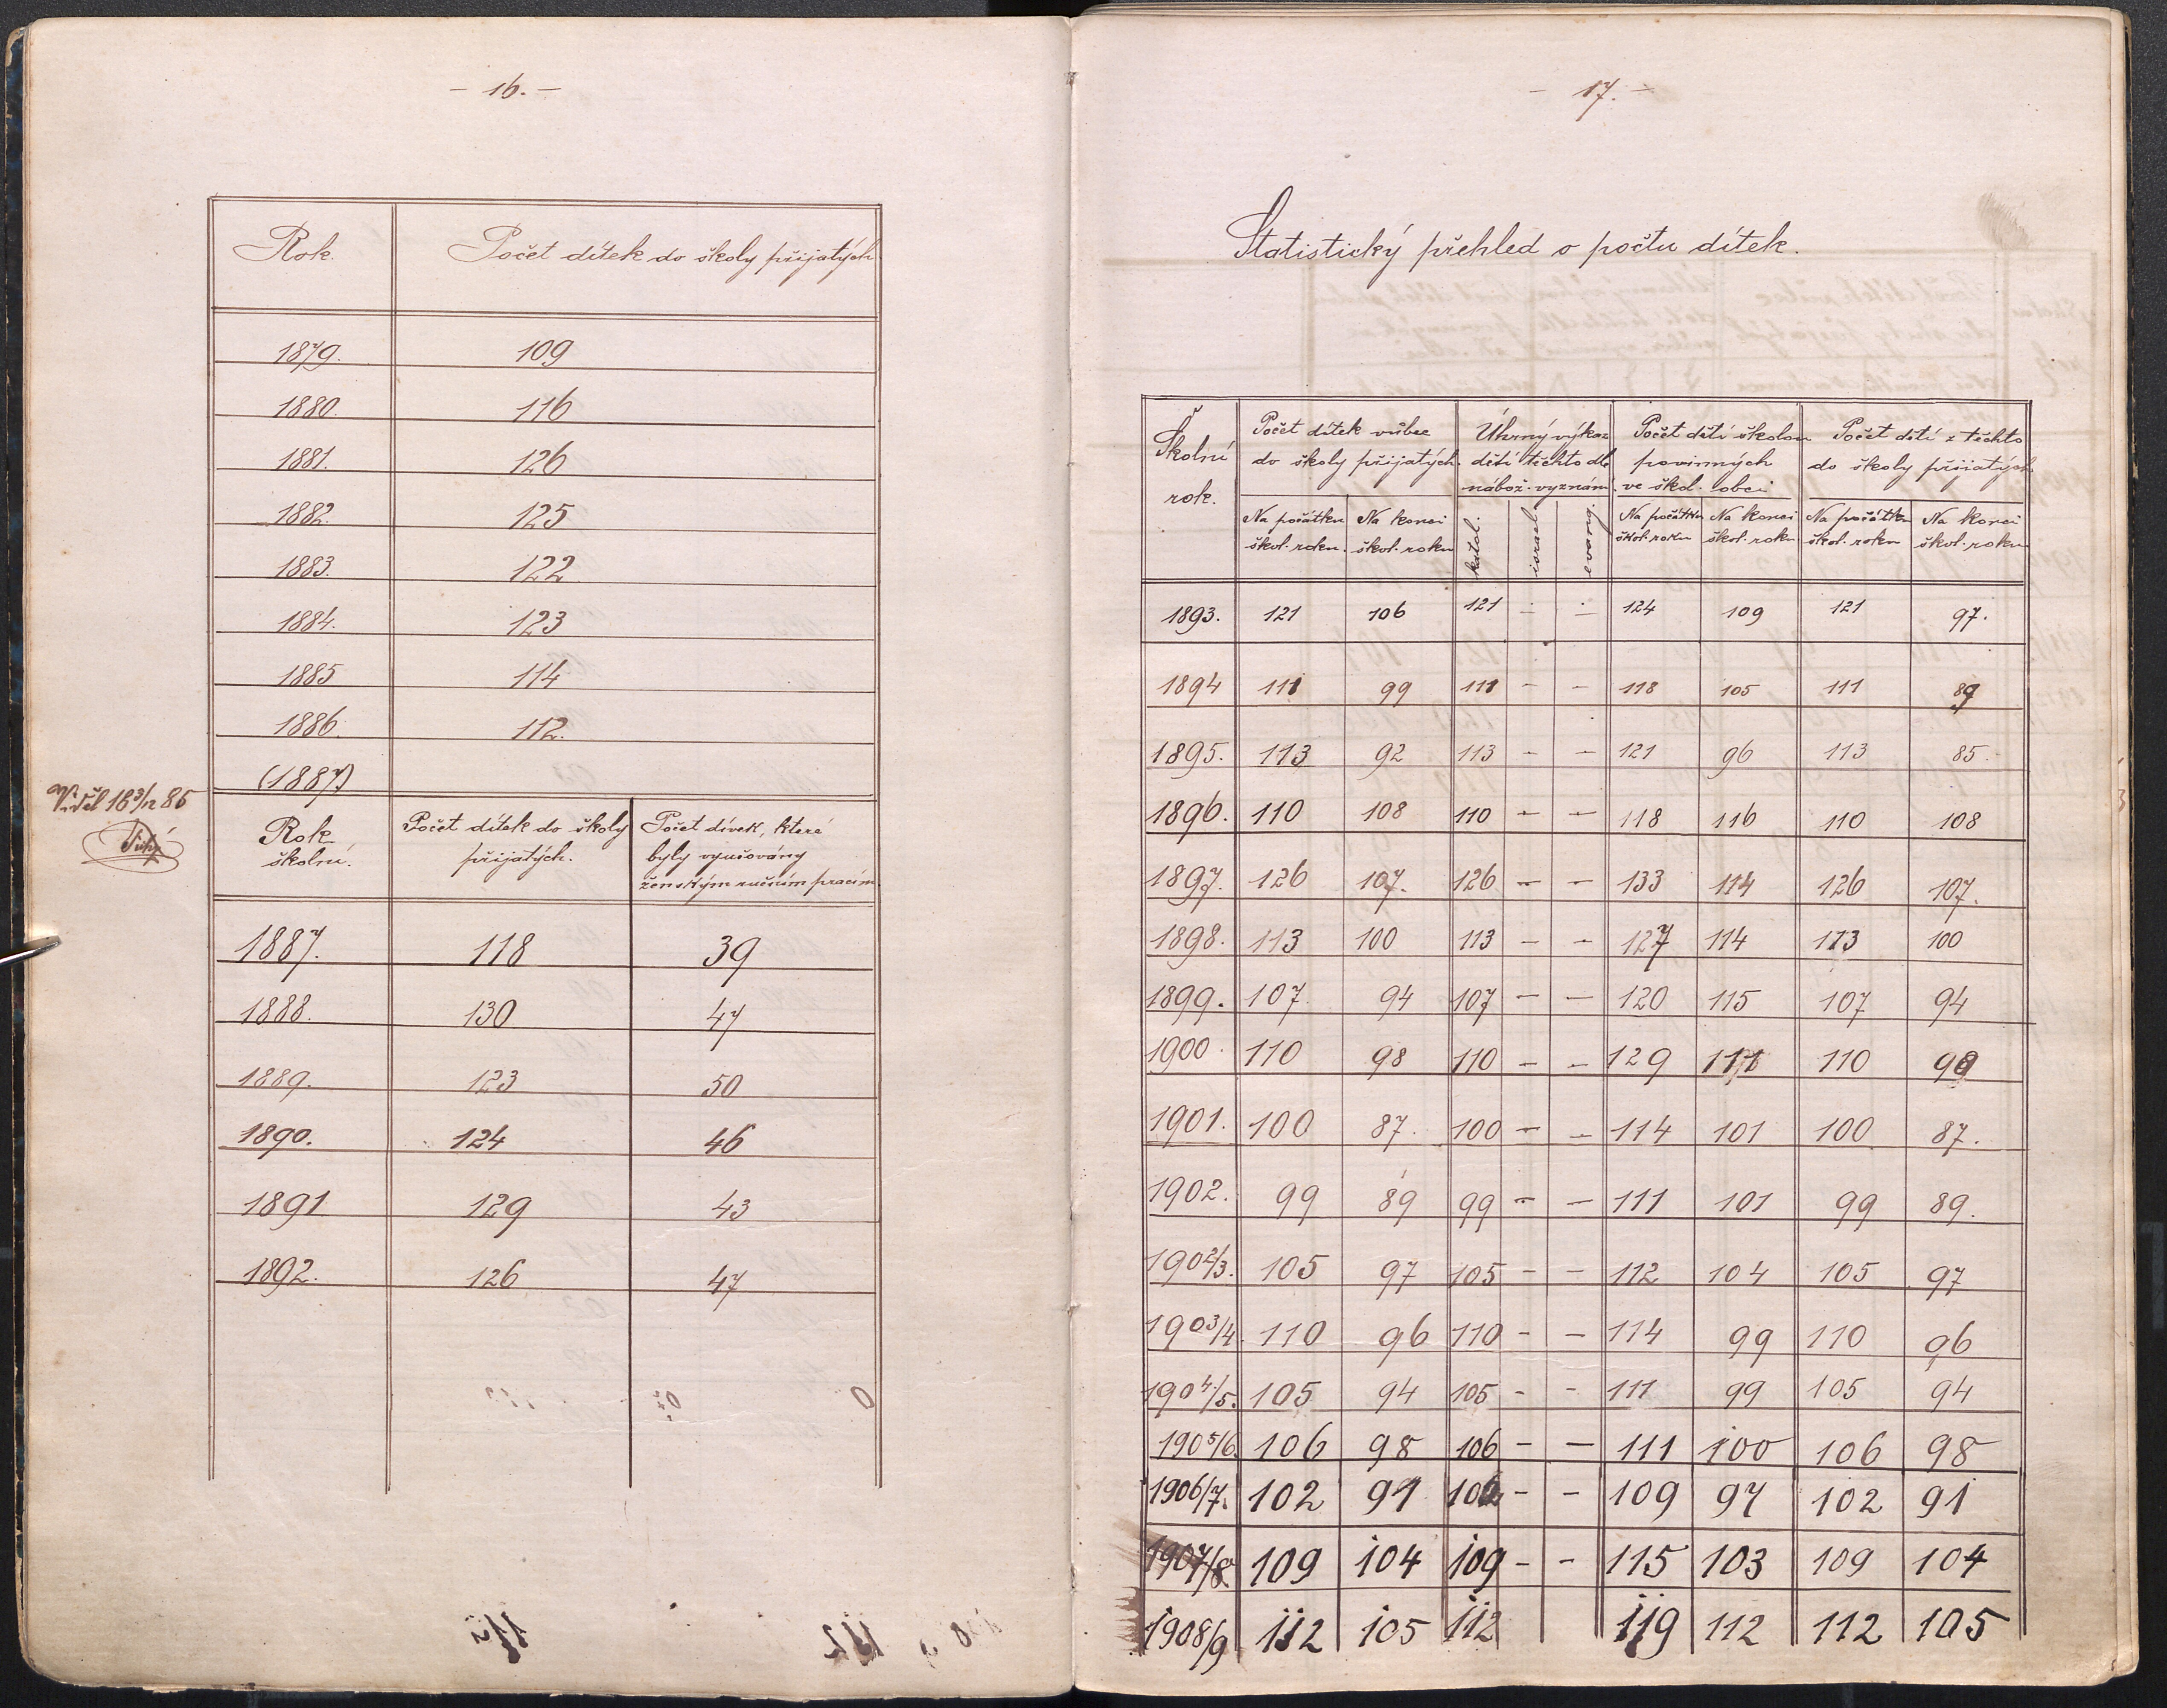 - 16. -
Rok. Počet dítek do školy přijatých
1879. 109
1880. 116
1881. 126
1882. 125
1883. 122
1884. 123
1885 114
1886. 112.
(1887)
Viděl 16 3/12 86
Rok školní. Počet dítek do školy přijatých. Počet dívek, které byly vyučovány ženským ručním pracím.
1887. 118 39
1888. 130 47
1889. 123 50
1890. 124 46
1891 129 43
1892. 126 47
- 17. -
Statistický přehled o počtu dítek.
Školní rok. Počet dítek vůbec do školy přijatých. Úhrný výkaz dětí těchto dle nábož. vyznání. Počet dětí školou povinných ve škol. obci Počet dětí z těchto do školy přijatých
Na počátku škol. roku. Na konci škol. roku katol. israel. evang. Na počátku škol. roku Na konci škol. roku Na počátku škol. roku Na konci škol. roku
1893. 121 106 121 - - 124 109 121 97.
1894 111 99 111 - - 118 105 111 89
1895. 113 92 113 - - 121 96 113 85
1896. 110 108 110 - - 118 116 110 108
1897. 126 107. 126 - - 133 114 126 107.
1898. 113 100 113 - - 127 114 113 100
1899. 107. 94 107 - - 120 115 107 94
1900. 110 98 110 - - 129 111 110 98
1901. 100 87. 100 - - 114 101 100 87.
1902. 99 89 99 - - 111 101 99 89.
1902/3. 105 97 105 - - 112 104 105 97
1903/4. 110 96 110 - - 114 99 110 96
1904/5. 105 94 105 - - 111 99 105 94
1905/6. 106 98 106 - - 111 100 106 98
1906/7. 102 91 102 - - 109 97 102 91
1907/8. 109 104 109 - - 115 103 109 104
1908/9 112 105 112 119 112 112 105